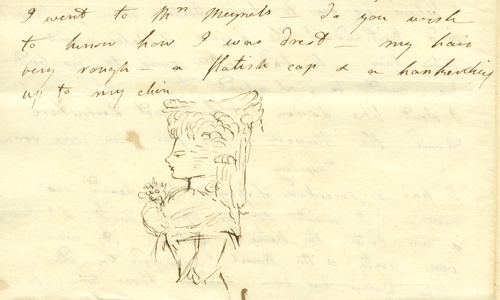 I went to Mrs Meynels – do you wish
to know how I was drest – my hair
very rough – a flatish cap & a hankerchief
up to my chin